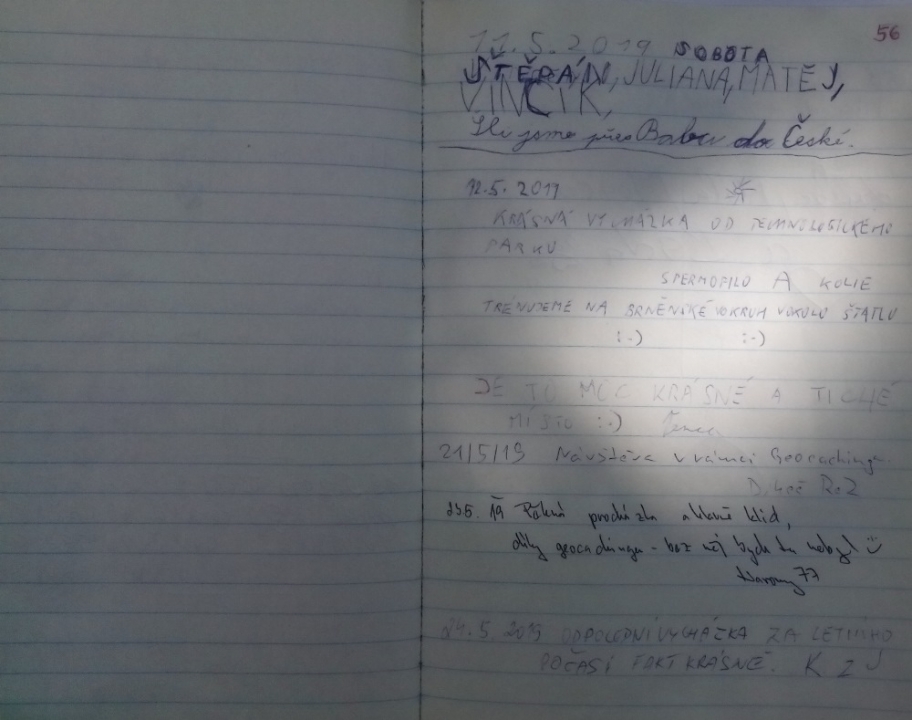 56
11.5.2019 SOBOTA
ŠTĚPÁN, JULIANA, MATĚJ,
VINCÍK,
Šli jsme přes Babu do České.
12.5. 2019
KRÁSNÁ VYCHÁZKA OD TECHNOLOGICKÉHO
PARKU
STERMOFILO A KOLIE
TRENUJEME NA BRNĚNSKÉ VOKRUH VOKOLO ŠTATLU
:-) :-)
JE TO MOC KRÁSNÉ A TICHÉ
MÍSTO :-)
21/5/19 Návštěva v rámci Geocachingu
23.5. 19 Pěkná procházka a hlavně klid,
díky geocachingu - bez něj bych tu nebyl
24.5. 2019 ODPOLEDNÍ VYCHÁZKA ZA LETNÍHO
POČASÍ FAKT KRÁSNÉ. K z J